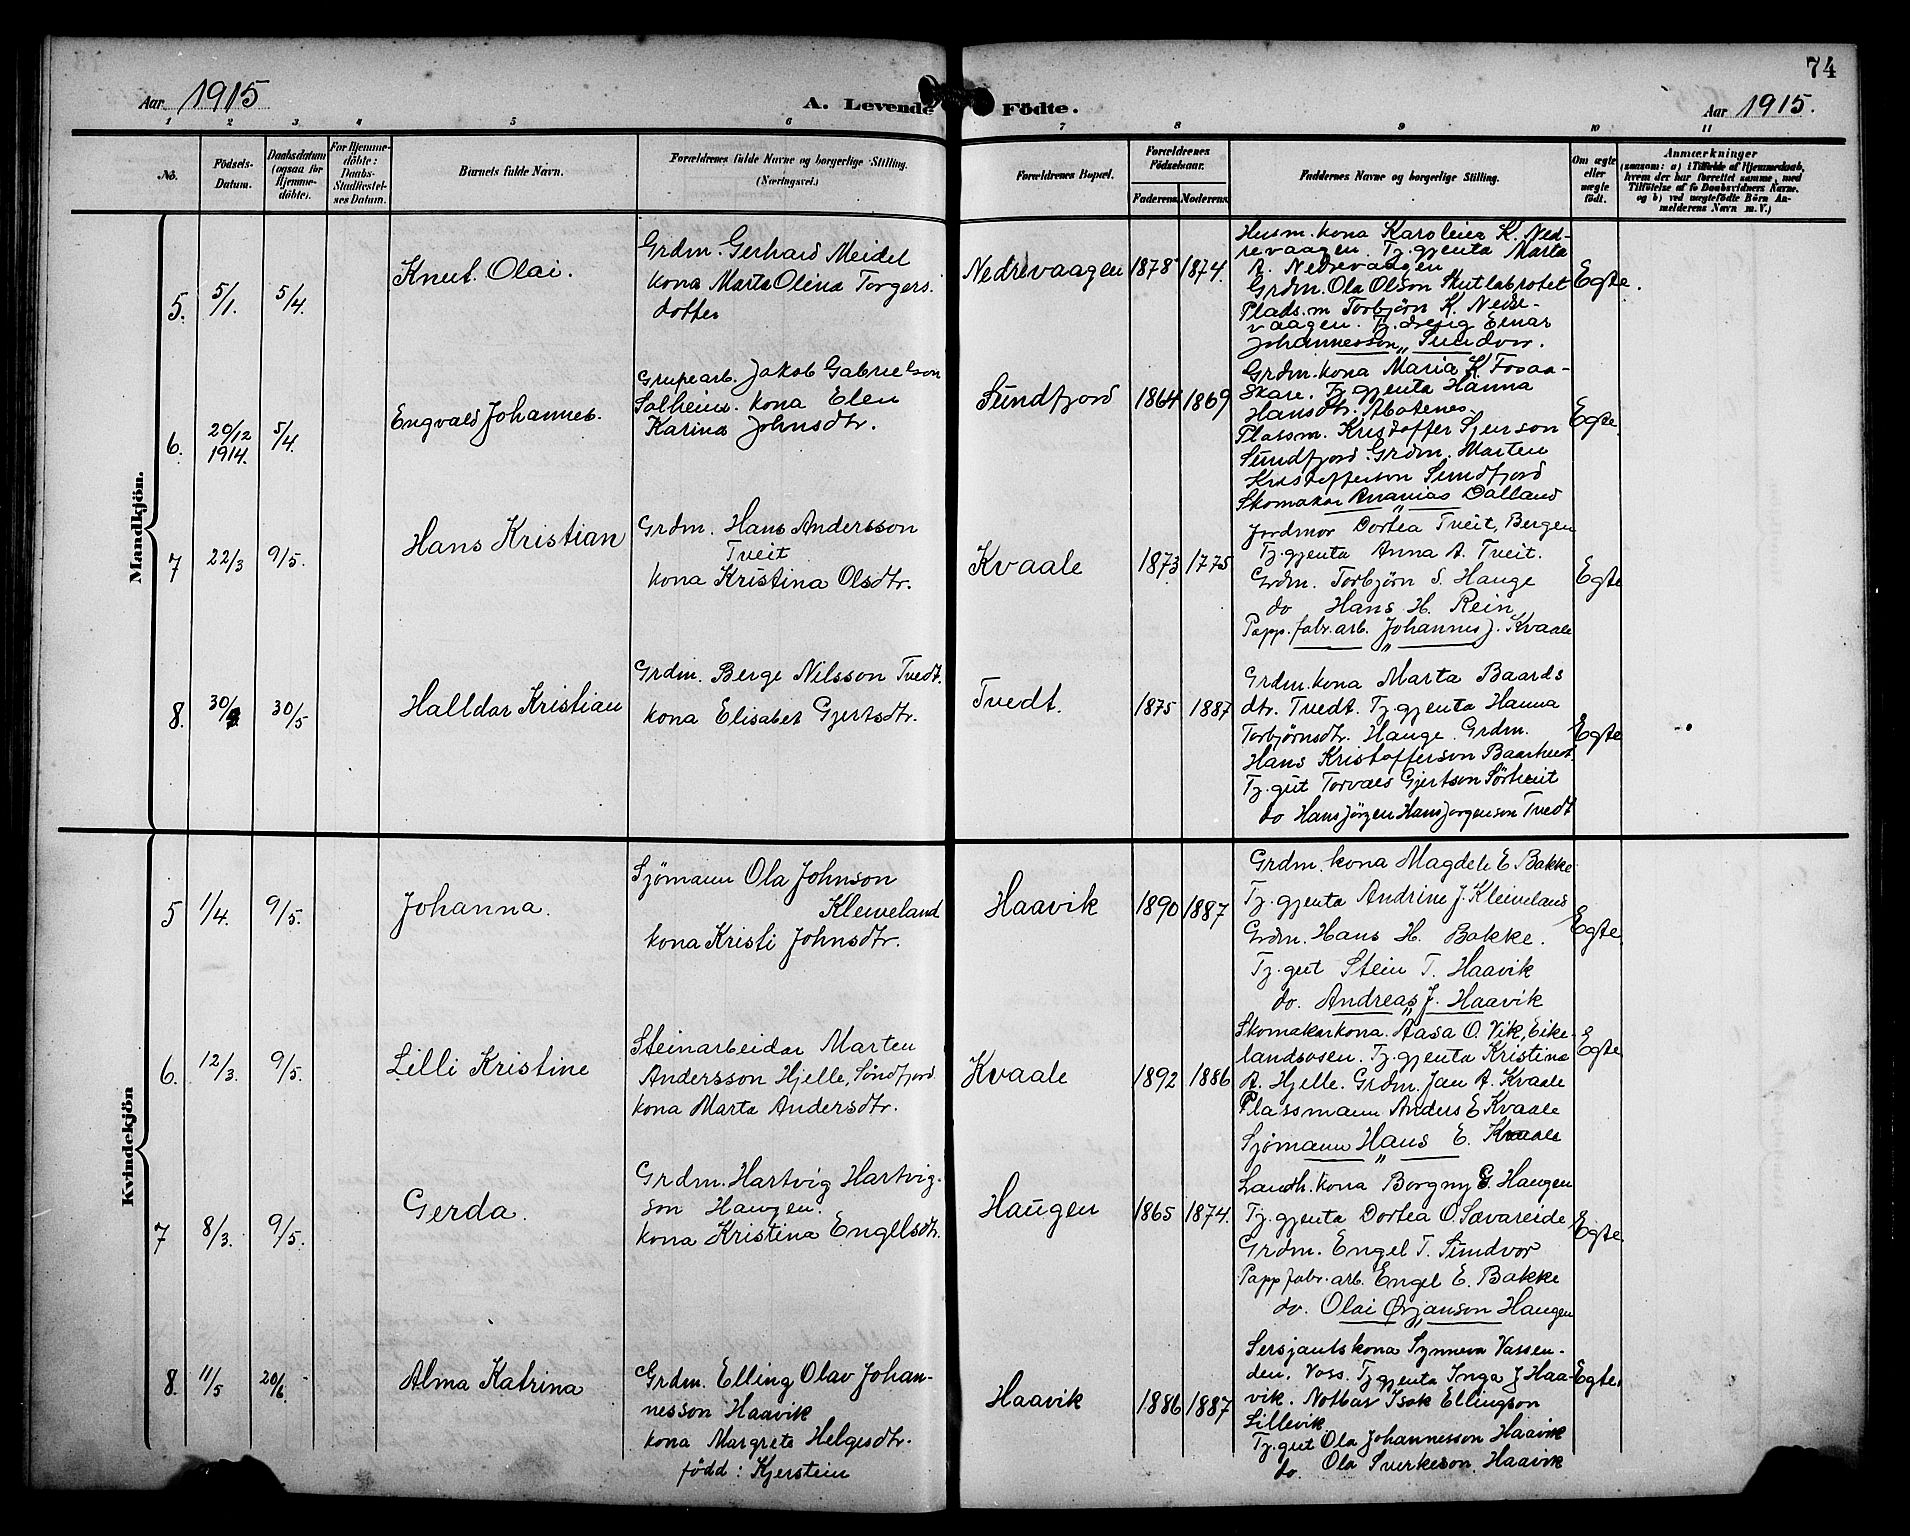 74
Aar 1915
A. Levende Födte.
Aar 1915.
1 2 3 4 5 6 7 8 9 10 11
No.
Födsels-
Datum.
Daabsdatum
(ogsaa for
Hjemme-
döbte).
For Hjemme-
döbte:
Daabs-
Stadfæstel-
ses Datum.
Barnets fulde Navn.
Forældrenes fulde Navne og borgerlige Stilling.
(Næringsvei.)
Forældrenes Bopæl.
Forældrenes
Födselsaar.
Faderens Moderens
Faddernes Navne og borgerlige Stilling.
Om ægte
eller
uægte
født.
Anmærkninger
(saasom: a) i Tilfælde af Hjemmedaab,
hvem der har forrettet samme, med
Tilföielse af to Daabsvidners Navne.
og b) ved uægtefödte Börn An-
melderens Navn m. V.)
Mandkjön.
5. 5/1. 5/4.
Knut Olai.
Grdm. Gerhard Meidel
kona Marta Olina Torgers
dotter
Nedrevaagen 1878 1874.
Husm. kona Karoleia K. Ned-
revaagen. Tj. gjenta Marta
A. Nedrevaagen
Grdm. Ola Olson Skutlabrotet
Plads.m Torbjörn K. Nedre-
vaagen. Tj. dreng Einar
Johannesson „ Sundvor.
Egte.
6. 20/12 1914. 5/4
Engvald Johannes.
Grupearb. Jakob Gabrielson
Solheim. kona Elen
Karina Johnsdtr.
Sundfjord 1864 1869
Grdm. kona Maria K. Fosaa-
skare. Tj. gjenta Hanna
Hansdtr.
Plassm. Kristoffer Sjurson
Sundfjord. Grdm. Marten
Kristofferson Sundfjord
Skomakar Ananias Dalland
Egte.
7 22/3 9/5.
Hans Kristian
Grdm. Hans Andersson
Tveit
kona Kristina Olsdtr.
Kvaale 1873 1775
Jordmor Dortea Tveit, Bergen
Tj. gjenta Anna A. Tveit.
Grdm. Torbjørn S. Hauge
do Hans H. Rein
Papp. fabr. arb. Johannes J. Kvaale
Egte
8. 30/4 30/5
Halldor Kristian
Grdm. Berge Nilsson Tvedt.
kona Elisabet Gjertsdtr.
Tvedt. 1875 1887
Grdm. kona Marta Baards
dtr. Tvedt. Tj. gjenta Hanna
Torbjørnsdtr. Hauge. Grdm.
Hans Kristofferson Baartveit
Tj. gut Torvald Gjertson Sörtveit
do Hans Jörgen Hans Jorgenson Tvedt
Egte
Kvindekjön
5 1/4. 9/5.
Johanna.
Sjømann Ola Johnson
Kleiveland
kona Kristi Johnsdtr.
Haavik 1890 1887
Grdm. kona Magdele E. Bakke
Tj. gjenta Andrine J. Kleiveland
Grdm. Hans H. Bakke.
Tj. gut Stein T. Haavik
do. Andreas J. Haavik
Egte
6. 12/3. 9/5.
Lilli Kristine
Steinarbeidar Marten
Andersson Hjelle, Søndfjord
kona Marta Andersdtr.
Kvaale 1892 1886
Skomakarkona. Aasa O. Vik, Eike-
landsosen. Tj. gjenta Kristina
A. Hjelle. Grdm. Jan A. Kvaale
Plassmann Anders E Kvaale
Sjømann Hans E. Kvaale
Egte
7 8/3. 9/5.
Gerda.
Grdm. Hartvig Hartvig-
son Haugen.
kona Kristina Engelsdtr.
Haugen 1865 1874.
Landh. kona Borgny G. Haugen
Tj. gjenta Dortea O. Sævareide
Grdm. Engel T. Sundvor
Papp fabr. arb. Engel E. Bakke
do. Olai Ørjanson Haugen
Egte
8. 11/5 20/6
Alma Katrina
Grdm. Elling Olav Johan-
nesson Haavik
kona Margrete Helgesdtr.
född: Kjerstein
Haavik 1886 1887
Sersjantskona Synneva Vassen-
den, Voss. Tj gjenta Inga J Haa-
vik. Notbas Isak Ellingson
Lillevik.
Tj. gut Ola Johannesson Haavik
do. Ola Sverkeson Haavik
Egte.